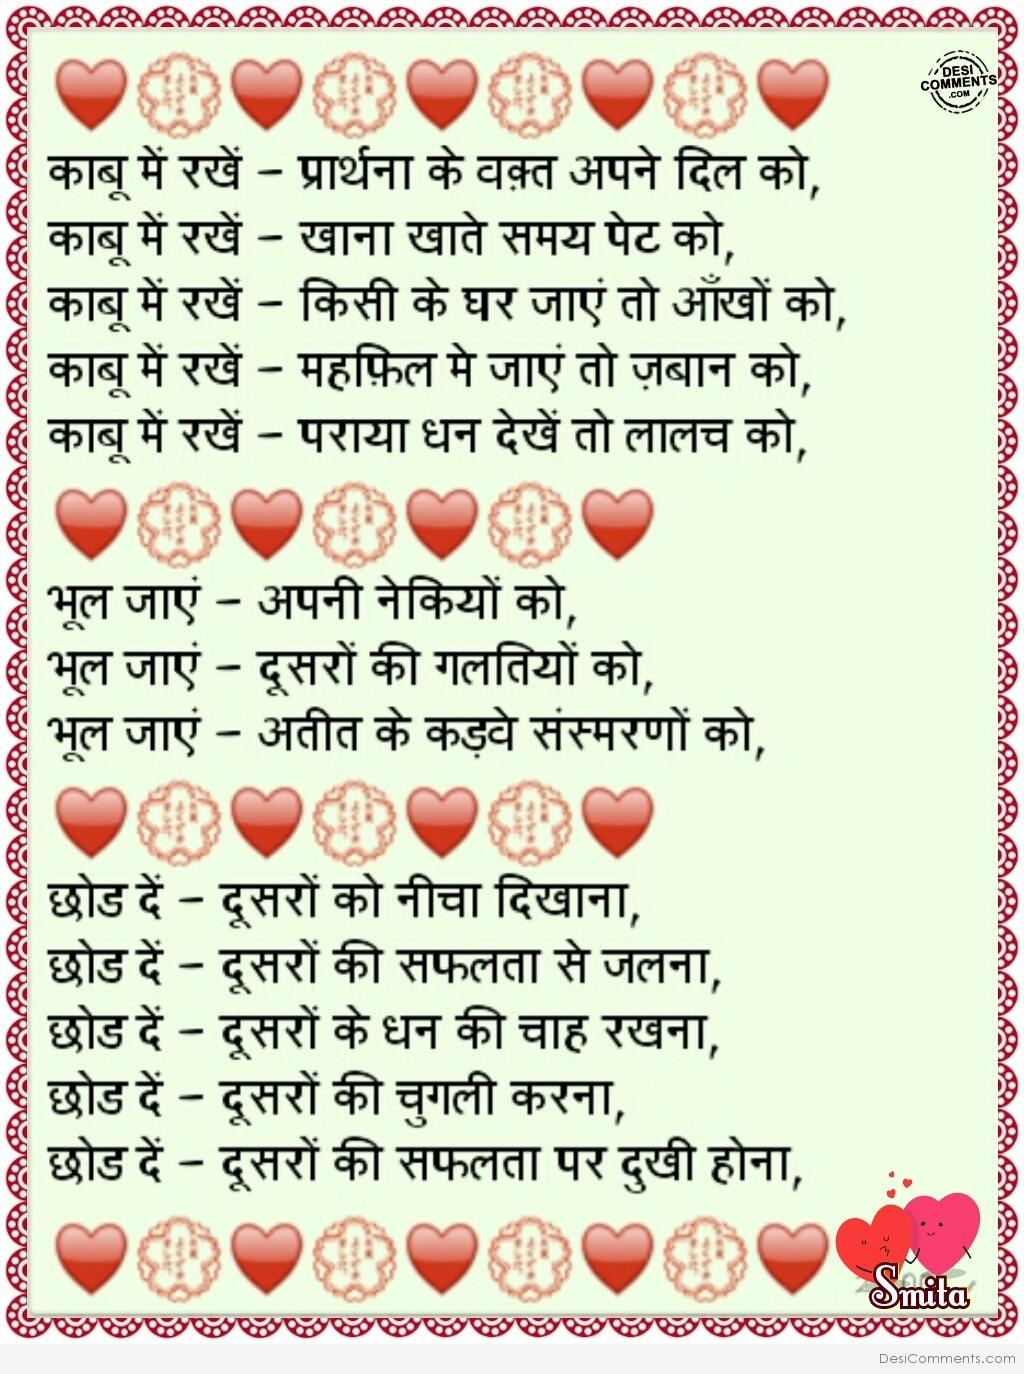 DESI
COMMENTS
.COM
काबू में रखें – प्रार्थना के वक़्त अपने दिल को,
काबू में रखें – खाना खाते समय पेट को,
काबू में रखें – किसी के घर जाएं तो आँखों को,
काबू में रखें – महफ़िल मे जाएं तो ज़बान को,
काबू में रखें – पराया धन देखें तो लालच को,
भूल जाएं – अपनी नेकियों को,
भूल जाएं – दूसरों की गलतियों को,
भूल जाएं – अतीत के कड़वे संस्मरणों को,
छोड दें – दूसरों को नीचा दिखाना,
छोड दें – दूसरों की सफलता से जलना,
छोड दें – दूसरों के धन की चाह रखना,
छोड दें – दूसरों की चुगली करना,
छोड दें – दूसरों की सफलता पर दुखी होना,
Smita
DesiComments.com